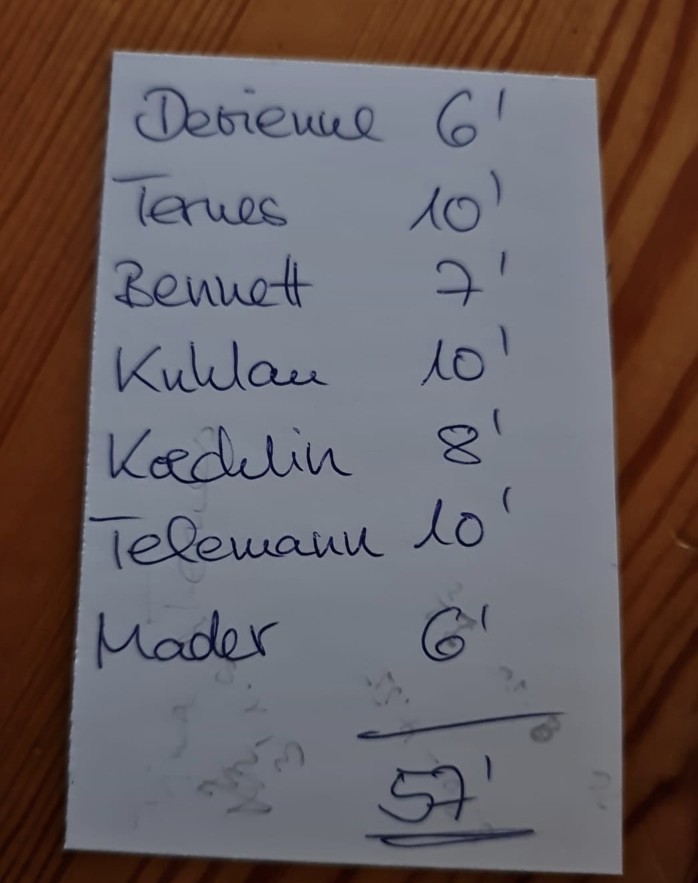 Devienne 6'
Ternes 10'
Bennett 7'
Kuhlau 10'
Kœchlin 8'
Telemann 10'
Mader 6'
57'